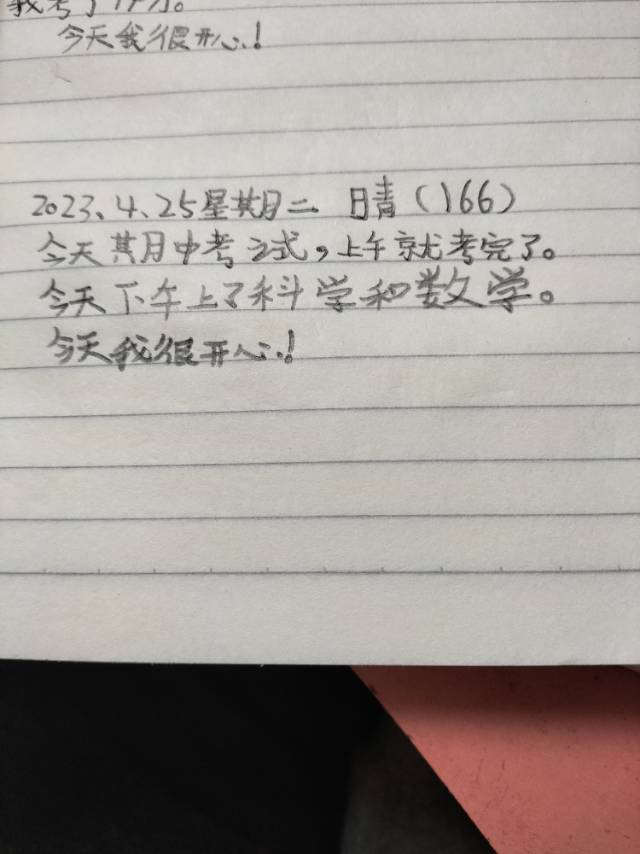 今天我很开心!
2023、4、25星期二 晴(166)
今天期中考试,上午就考完了。
今天下午上了科学和数学。
今天我很开心!